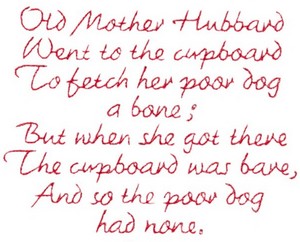 Old Mother Hubbard
Went to the cupboard
To fetch her poor dog
a bone;
But when she got there
The cupboard was bare,
And so the poor dog
had none.